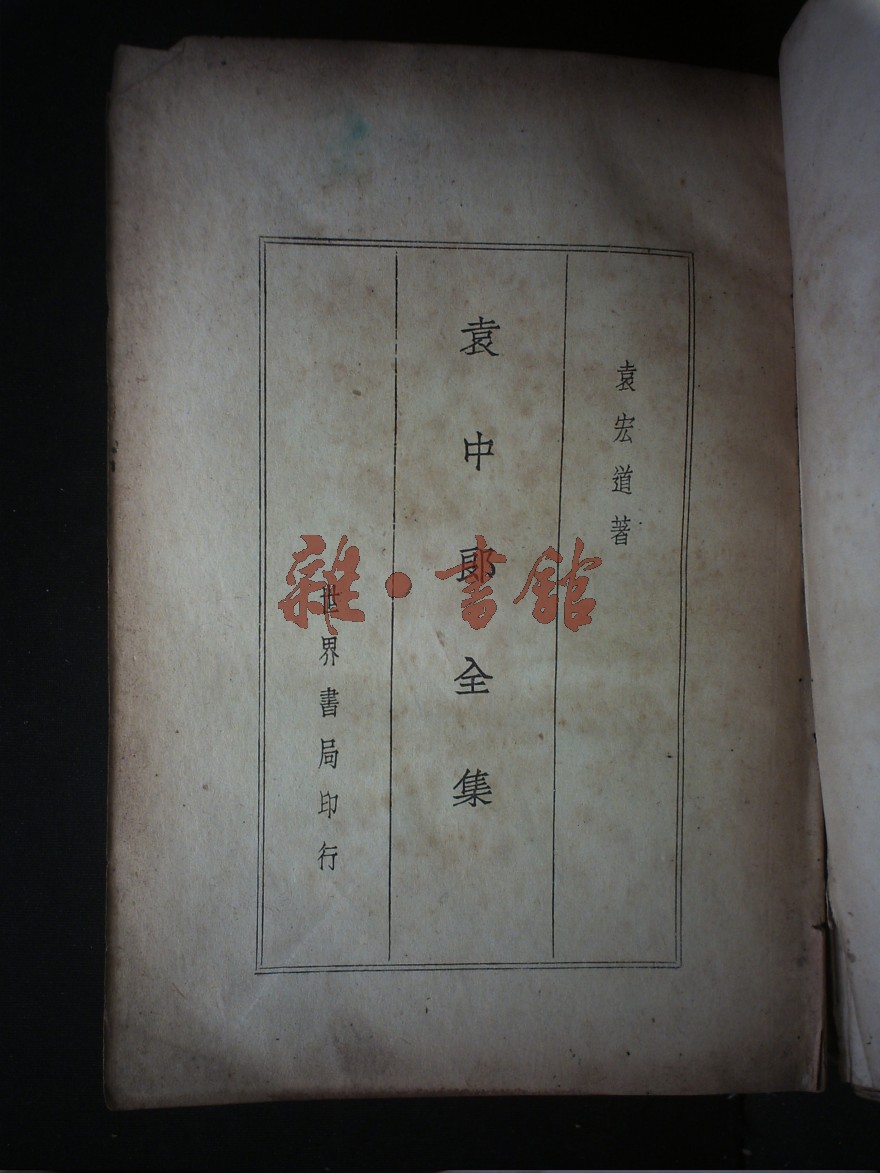 袁宏道著
袁中郎全集
世界書局印行
雜·書館